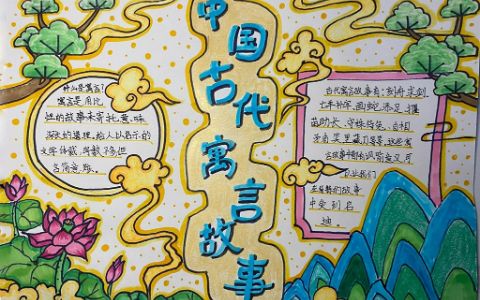 中国古代寓言故事
什么是寓言?
寓言是用比
喻的故事来寄托意味
深长的道理,给人以启示的
文学体裁,字数不多但
言简意赅。
古代寓言故事有:刻舟求剑、
亡羊补牢、画蛇添足、揠
苗助长、守株待兔、自相
矛盾、等,这些寓
言故事
我们
在看故事
中受到
迪。